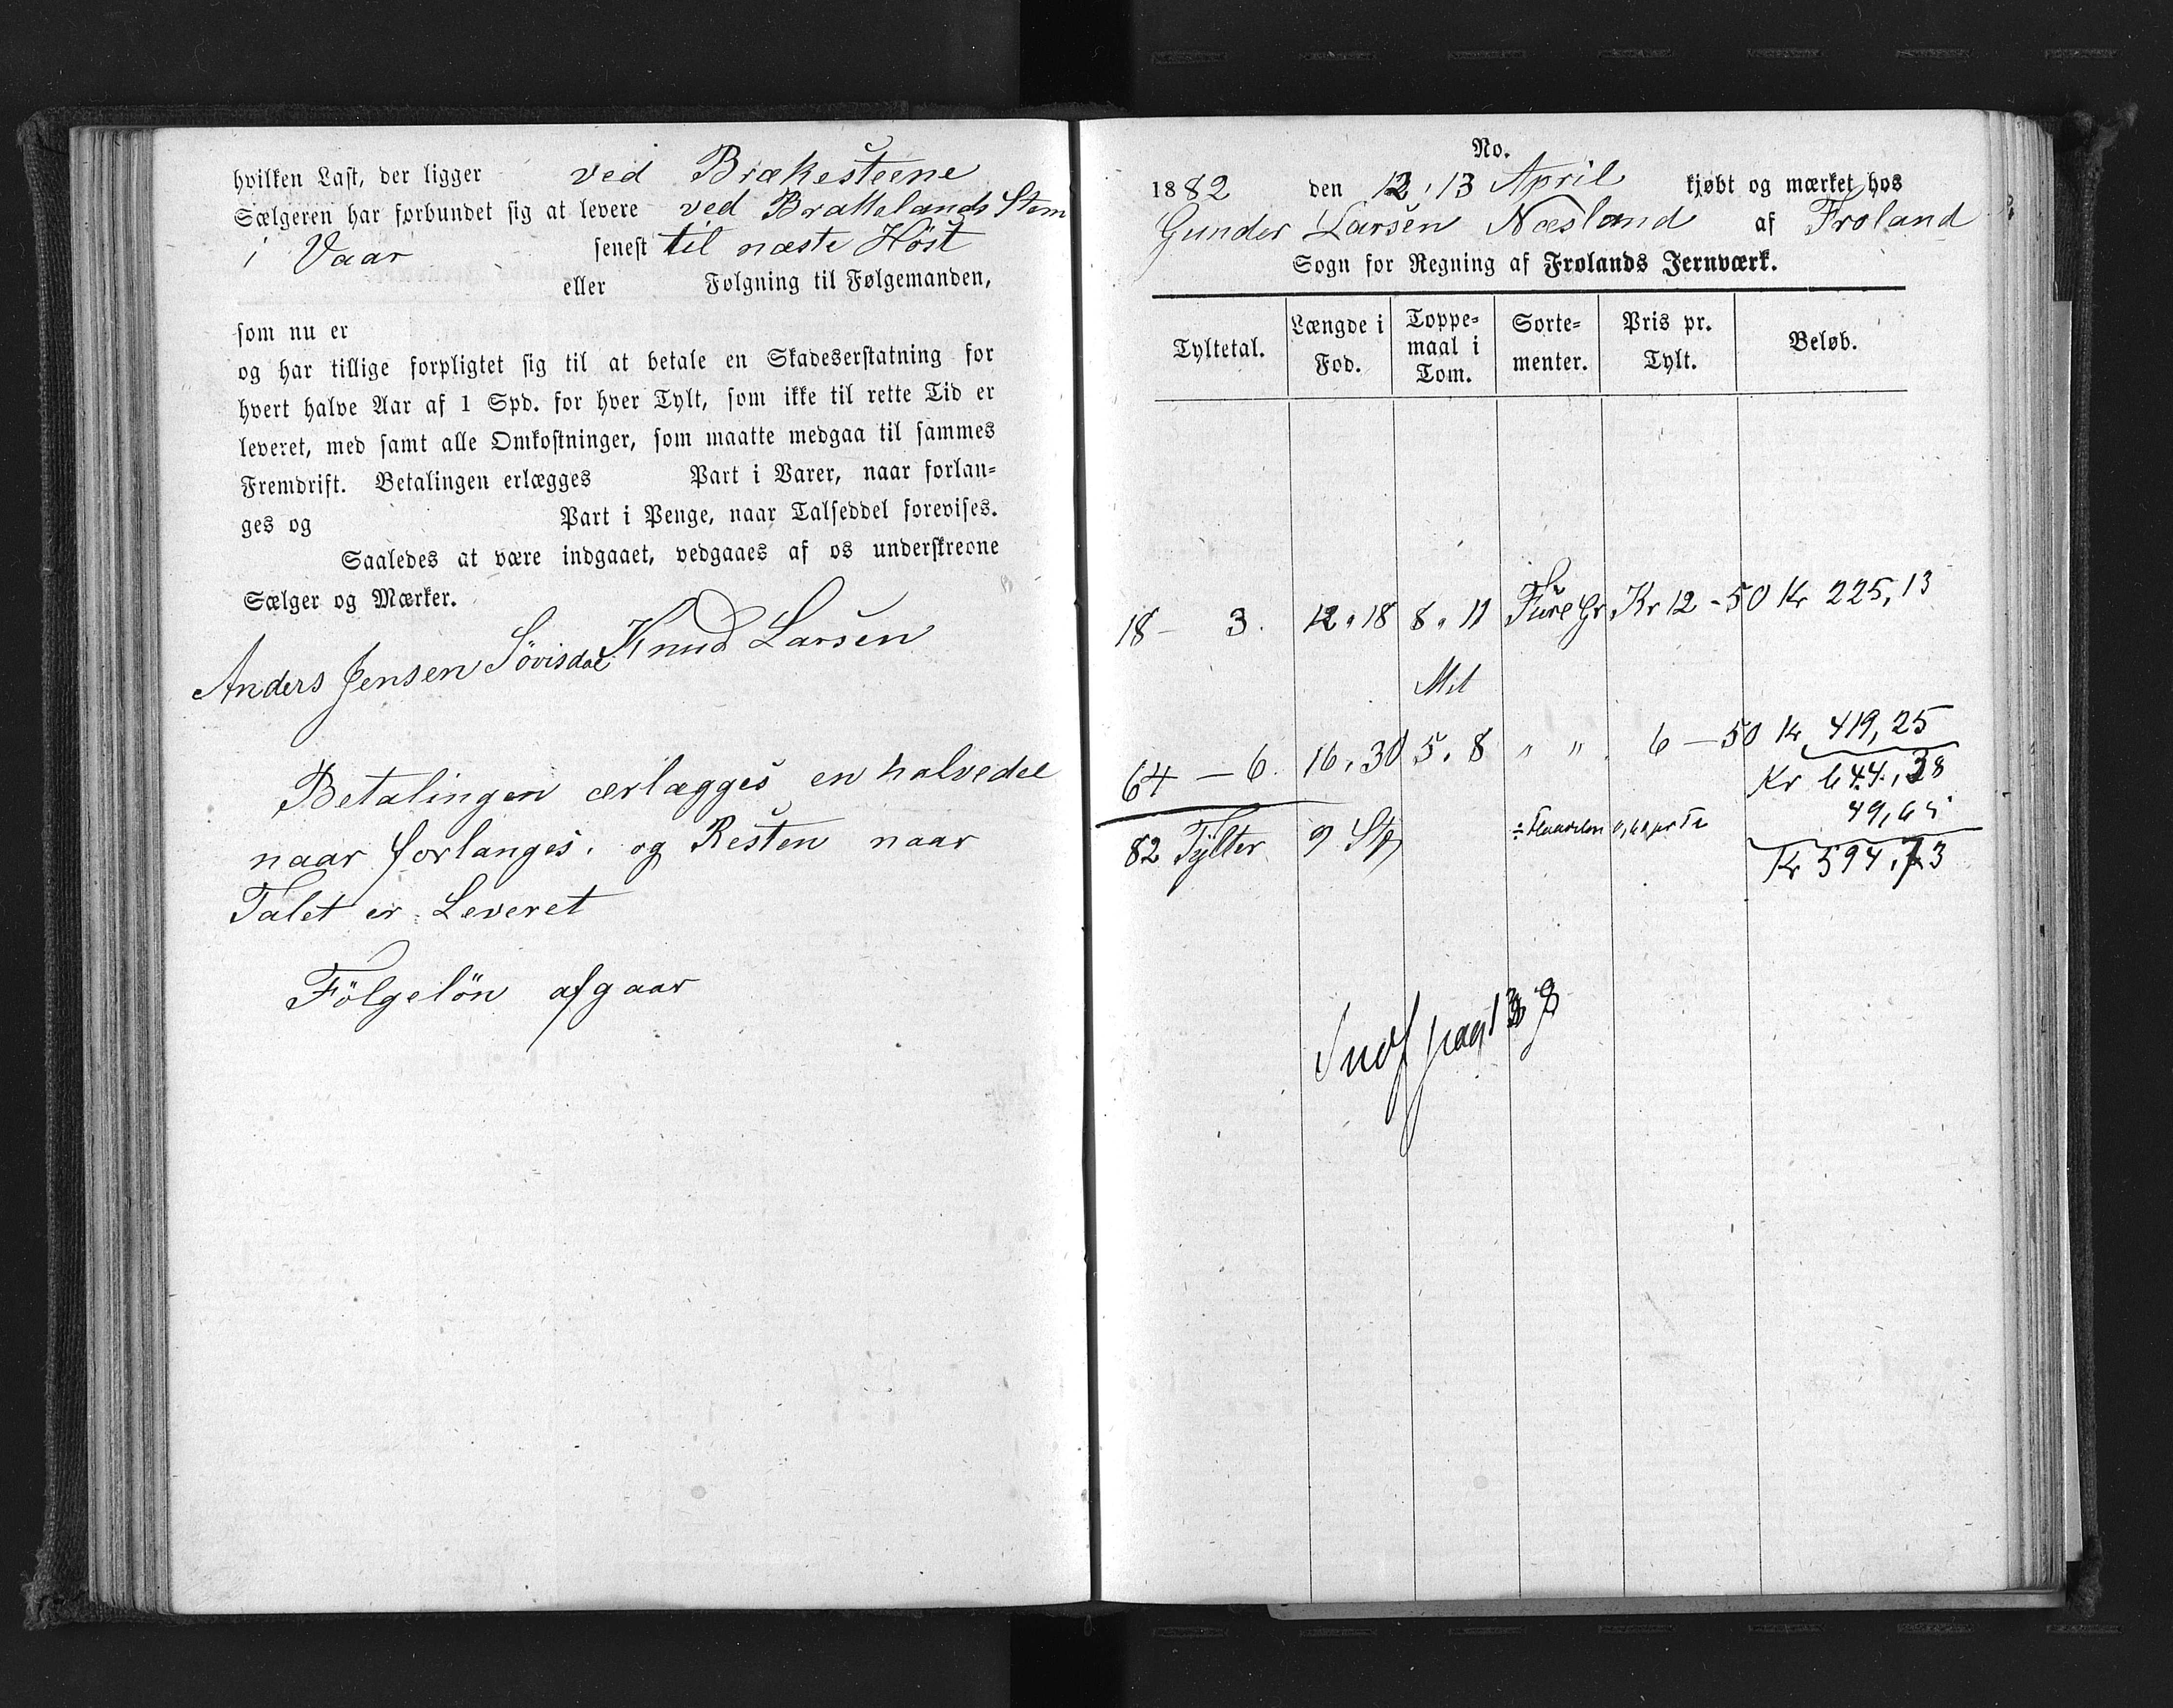 hvilken Last, der ligger ved Brækesteene
Sælgeren har forbundet sig at levere ved Brattelands Stem
i Vaar senest til næste Høst
eller Følgning til Følgemanden,
som nu er
og har tillige forpligtet sig til at betale en Skadeserstatning for
hvert halve Aar af 1 Spd. for hver Tylt, som ikke til rette Tid er
leveret, med samt alle Omkostninger, som maatte medgaa til sammes
Fremdrift. Betalingen erlægges Part i Varer, naar forlan-
ges og Part i Penge, naar Talseddel forevises.
Saaledes at være indgaaet, vedgaaes af os underskrevne
Sælger og Mærker.
Anders Jensen Sövisdal Knud Larsen
Betalingen ærlægges en halvedel
naar forlanges. og Resten naar
Talet er Leveret
Fölgelön afgaar
No.
1882 den 12, 13 April kjøbt og mærket hos
Gunder Larsen Næsland af Froland
Sogn for Regning af Frolands Jernværk.
Tyltetal. Længde i Fod. Toppe-maal i Tom. Sorte-menter. Pris pr. Tylt. Beløb.
18 - 3. 12 . 18 8 . 11 Fure Gr Kr 12 - 50 Kr 225,13
Mit
64 - 6. 16 . 30 5 . 8 " " 6 - 50 Kr 419,25
Kr 644,38
82 Tylter 9 St 49,65
Kr 594,73
pag 138